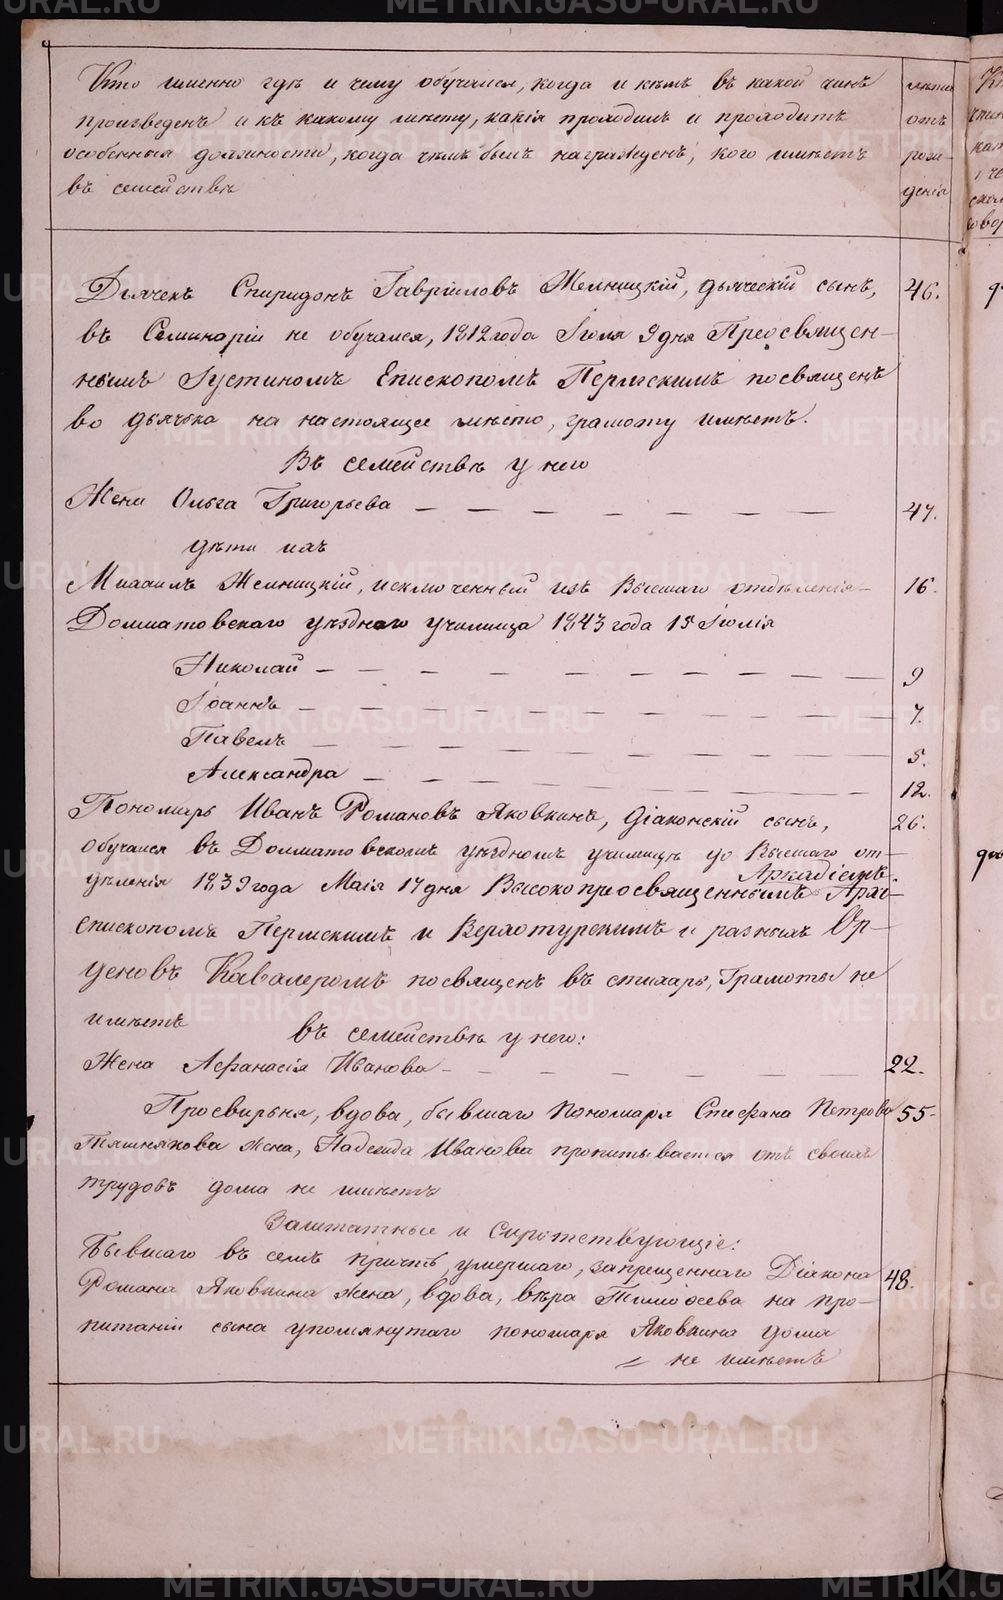 Кто именно гдѣ и чему обучался, когда и кѣмъ въ какой чинъ
произведенъ и къ какому мѣсту, какія проходилъ и проходитъ
особенныя должности, когда чѣмъ былъ награжденъ, кого имѣетъ
въ семействѣ
лѣта
отъ
рож-
денія
Дьячекъ Спиридонъ Гавріиловъ Желницкій, дьяческій сынъ, 46.
въ Семинаріи не обучался, 1812 года Іюля 9 дня Преосвящен-
нымъ Іустиномъ Епископомъ Пермскимъ посвященъ
во дьячка на настоящее мѣсто, грамоту имѣетъ.
Въ семействѣ у него
Жена Ольга Григорьева 47.
дѣти ихъ
Михаилъ Желницкій, исключенный изъ Высшаго отдѣленія 16.
Долматовскаго уѣзднаго училища 1843 года 15 Іюлія
Николай 9
Іоаннъ 7.
Павелъ 5.
Александра 12.
Пономарь Иванъ Романовъ Яковкинъ, діаконскій сынъ, 26.
обучался въ Долматовскомъ уѣздномъ училищѣ до Высшаго от-
дѣленія 1839 года Маія 17 дня Высокопреосвященнымъ Аркадіемъ Архі-
епископомъ Пермскимъ и Верхотурскимъ и разныхъ Ор-
деновъ Кавалеромъ посвященъ въ стихарь, Грамоты не
имѣетъ
въ семействѣ у него:
Жена Афанасія Иванова 22.
Просвирьня, вдова, бывшаго пономаря Стефана Петрова 55.
жена, Надежда Иванова пропитывается отъ своихъ
трудовъ дома не имѣетъ
Заштатные и Сиротствующіе:
Бывшаго въ семъ причтѣ, умершаго, запрещеннаго Діакона
Романа Яковкина жена, вдова, Вѣра Тимофеева на про- 48.
питаніи сына упомянутаго пономаря Яковкина дома
не имѣетъ
METRIKI.GASO-URAL.RU